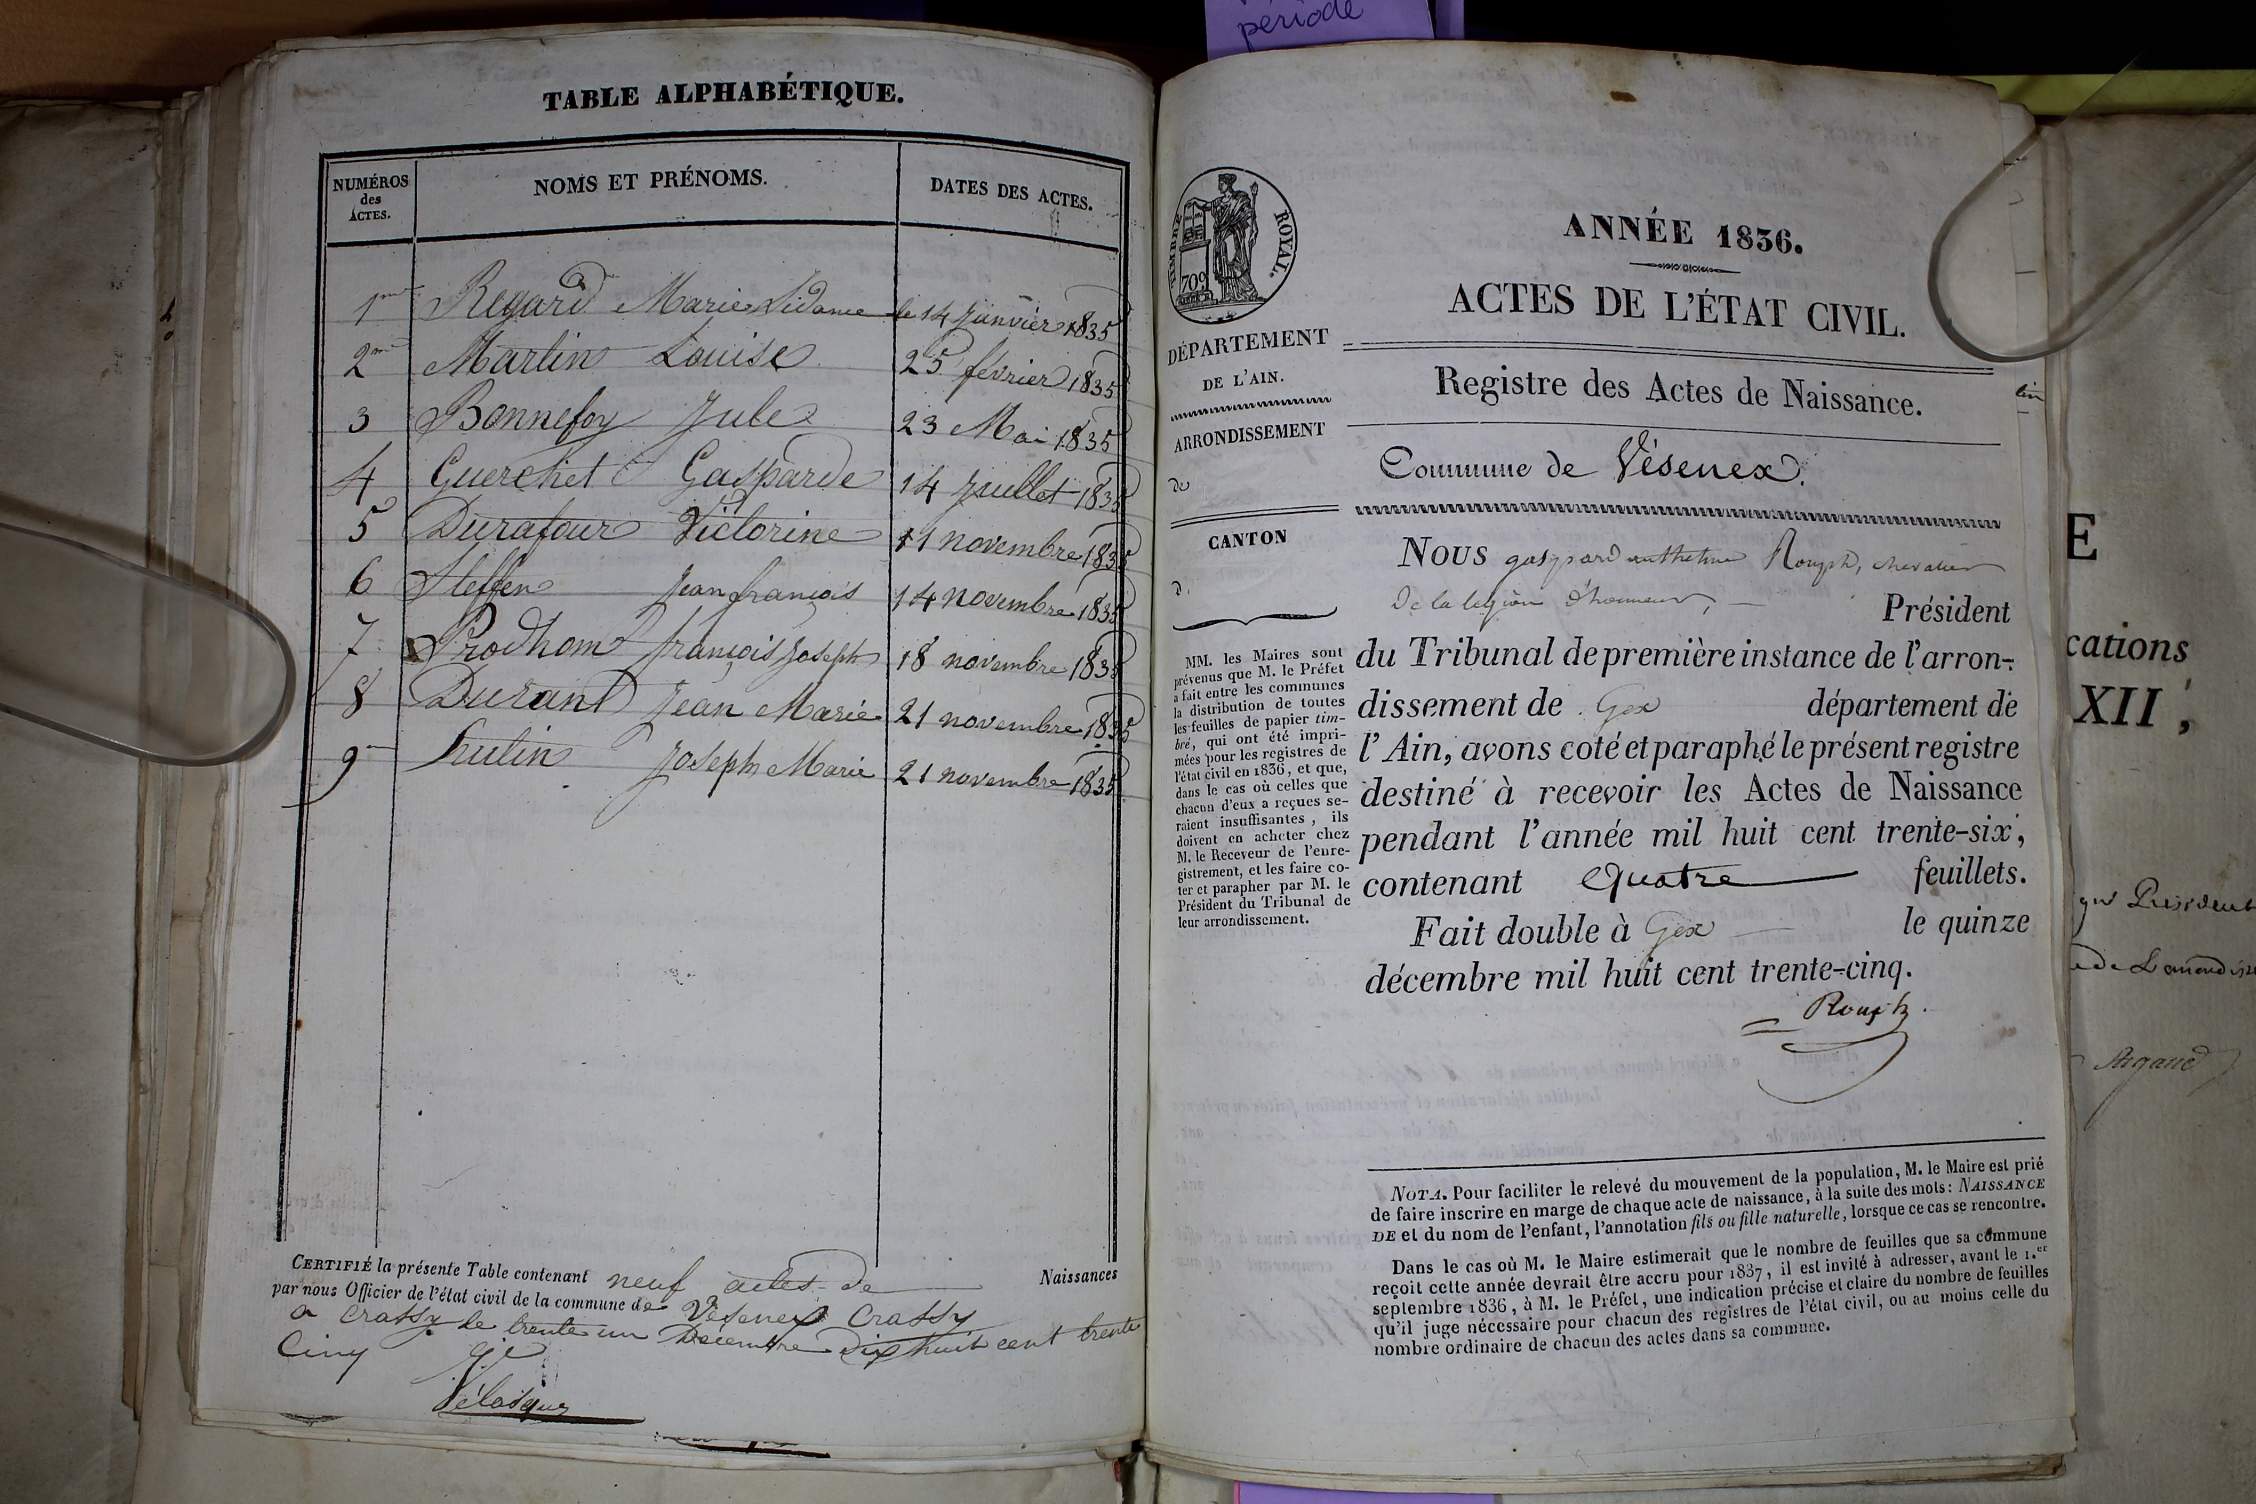 période
TABLE ALPHABÉTIQUE.
NUMÉROS
des
ACTES.
NOMS ET PRÉNOMS.
DATES DES ACTES.
1re Regard Marie le 14 Janvier 1835
2me Martin Louise 25 février 1835
3 Bonnefoy Jule 23 Mai 1835
4 Guerchet Gasparde 14 Juillet 1835
5 Durafour Victorine 11 novembre 1835
6 Steffen Jean françois 14 novembre 1835
7 Prodhom françois Joseph 18 novembre 1835
8 Durand Jean Marie 21 novembre 1835
9 Hutin Joseph Marie 21 novembre 1835
CERTIFIÉ la présente Table contenant neuf actes de Naissances
par nous Officier de l'état civil de la commune de Vesenex Crassy
a Crassy le trente un Décembre Dix huit cent trente
Cinq
Vélasque
TIMBRE ROYAL.
709
DÉPARTEMENT
DE L'AIN.
ARRONDISSEMENT
de
CANTON
d
MM. les Maires sont
prévenus que M. le Préfet
a fait entre les communes
la distribution de toutes
les feuilles de papier tim-
bré, qui ont été impri-
mées pour les registres de
l'état civil en 1836, et que,
dans le cas où celles que
chacun d'eux a reçues se-
raient insuffisantes, ils
doivent en acheter chez
M. le Receveur de l'enre-
gistrement, et les faire co-
ter et parapher par M. le
Président du Tribunal de
leur arrondissement.
ANNÉE 1836.
ACTES DE L'ÉTAT CIVIL.
Registre des Actes de Naissance.
Commune de Vésenex.
NOUS gaspard anthelme Rouph, chevalier
De la légion d'honneur, Président
du Tribunal de première instance de l'arron-
dissement de Gex département de
l'Ain, avons coté et paraphé le présent registre
destiné à recevoir les Actes de Naissance
pendant l'année mil huit cent trente-six,
contenant Quatre feuillets.
Fait double à Gex le quinze
décembre mil huit cent trente-cinq.
Rouph
NOTA. Pour faciliter le relevé du mouvement de la population, M. le Maire est prié
de faire inscrire en marge de chaque acte de naissance, à la suite des mots: NAISSANCE
DE et du nom de l'enfant, l'annotation fils ou fille naturelle, lorsque ce cas se rencontre.
Dans le cas où M. le Maire estimerait que le nombre de feuilles que sa commune
reçoit cette année devrait être accru pour 1837, il est invité à adresser, avant le 1.er
septembre 1836, à M. le Préfet, une indication précise et claire du nombre de feuilles
qu'il juge nécessaire pour chacun des registres de l'état civil, ou au moins celle du
nombre ordinaire de chacun des actes dans sa commune.
E
cations
XII,
Président
Argand